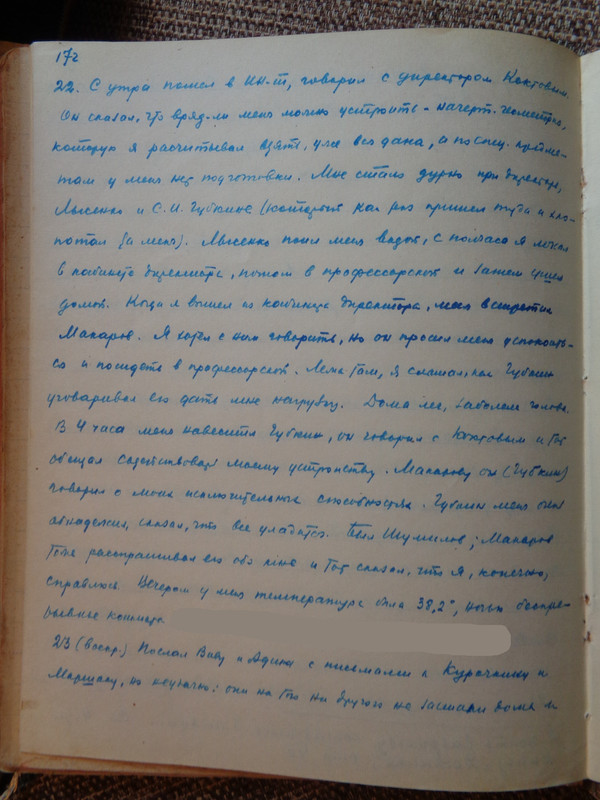 172
22. С утра пошел в ин-т, говорил с директором Коктовым.
Он сказал, что вряд-ли меня можно устроить - начерт. геометрия,
которую я расчитывал взять, уже вся дана, а по спец. предме-
там у меня нет подготовки. Мне стало дурно при директоре,
Лысенко и С.И. Губкине (который как раз пришел туда и хло-
потал за меня). Лысенко поил меня водой, с полчаса я лежал
в кабинете директора, потом в профессорской и затем ушел
домой. Когда я вышел из кабинета директора, меня встретил
Макаров. Я хотел с ним говорить, но он просил меня успокоить-
ся и посидеть в профессорской. Лежа там, я слышал, как Губкин
уговаривал его дать мне нагрузку. Дома лег, заболела голова.
В 4 часа меня навестил Губкин, он говорил с Коктовым и тот
обещал содействовать моему устройству. Макарову он (Губкин)
говорил о моих исключительных способностях. Губкин меня очень
обнадежил, сказал, что все уладится. Был Шумилов; Макаров
тоже расспрашивал его обо мне и тот сказал, что я, конечно,
справлюсь. Вечером у меня температура была 38,2°, ночью беспре-
рывные кошмары
23 (воскр.) Послал Вову и Адика с письмами к Курочкину и
Маршаку, но неудачно: они ни того ни другого не застали дома и